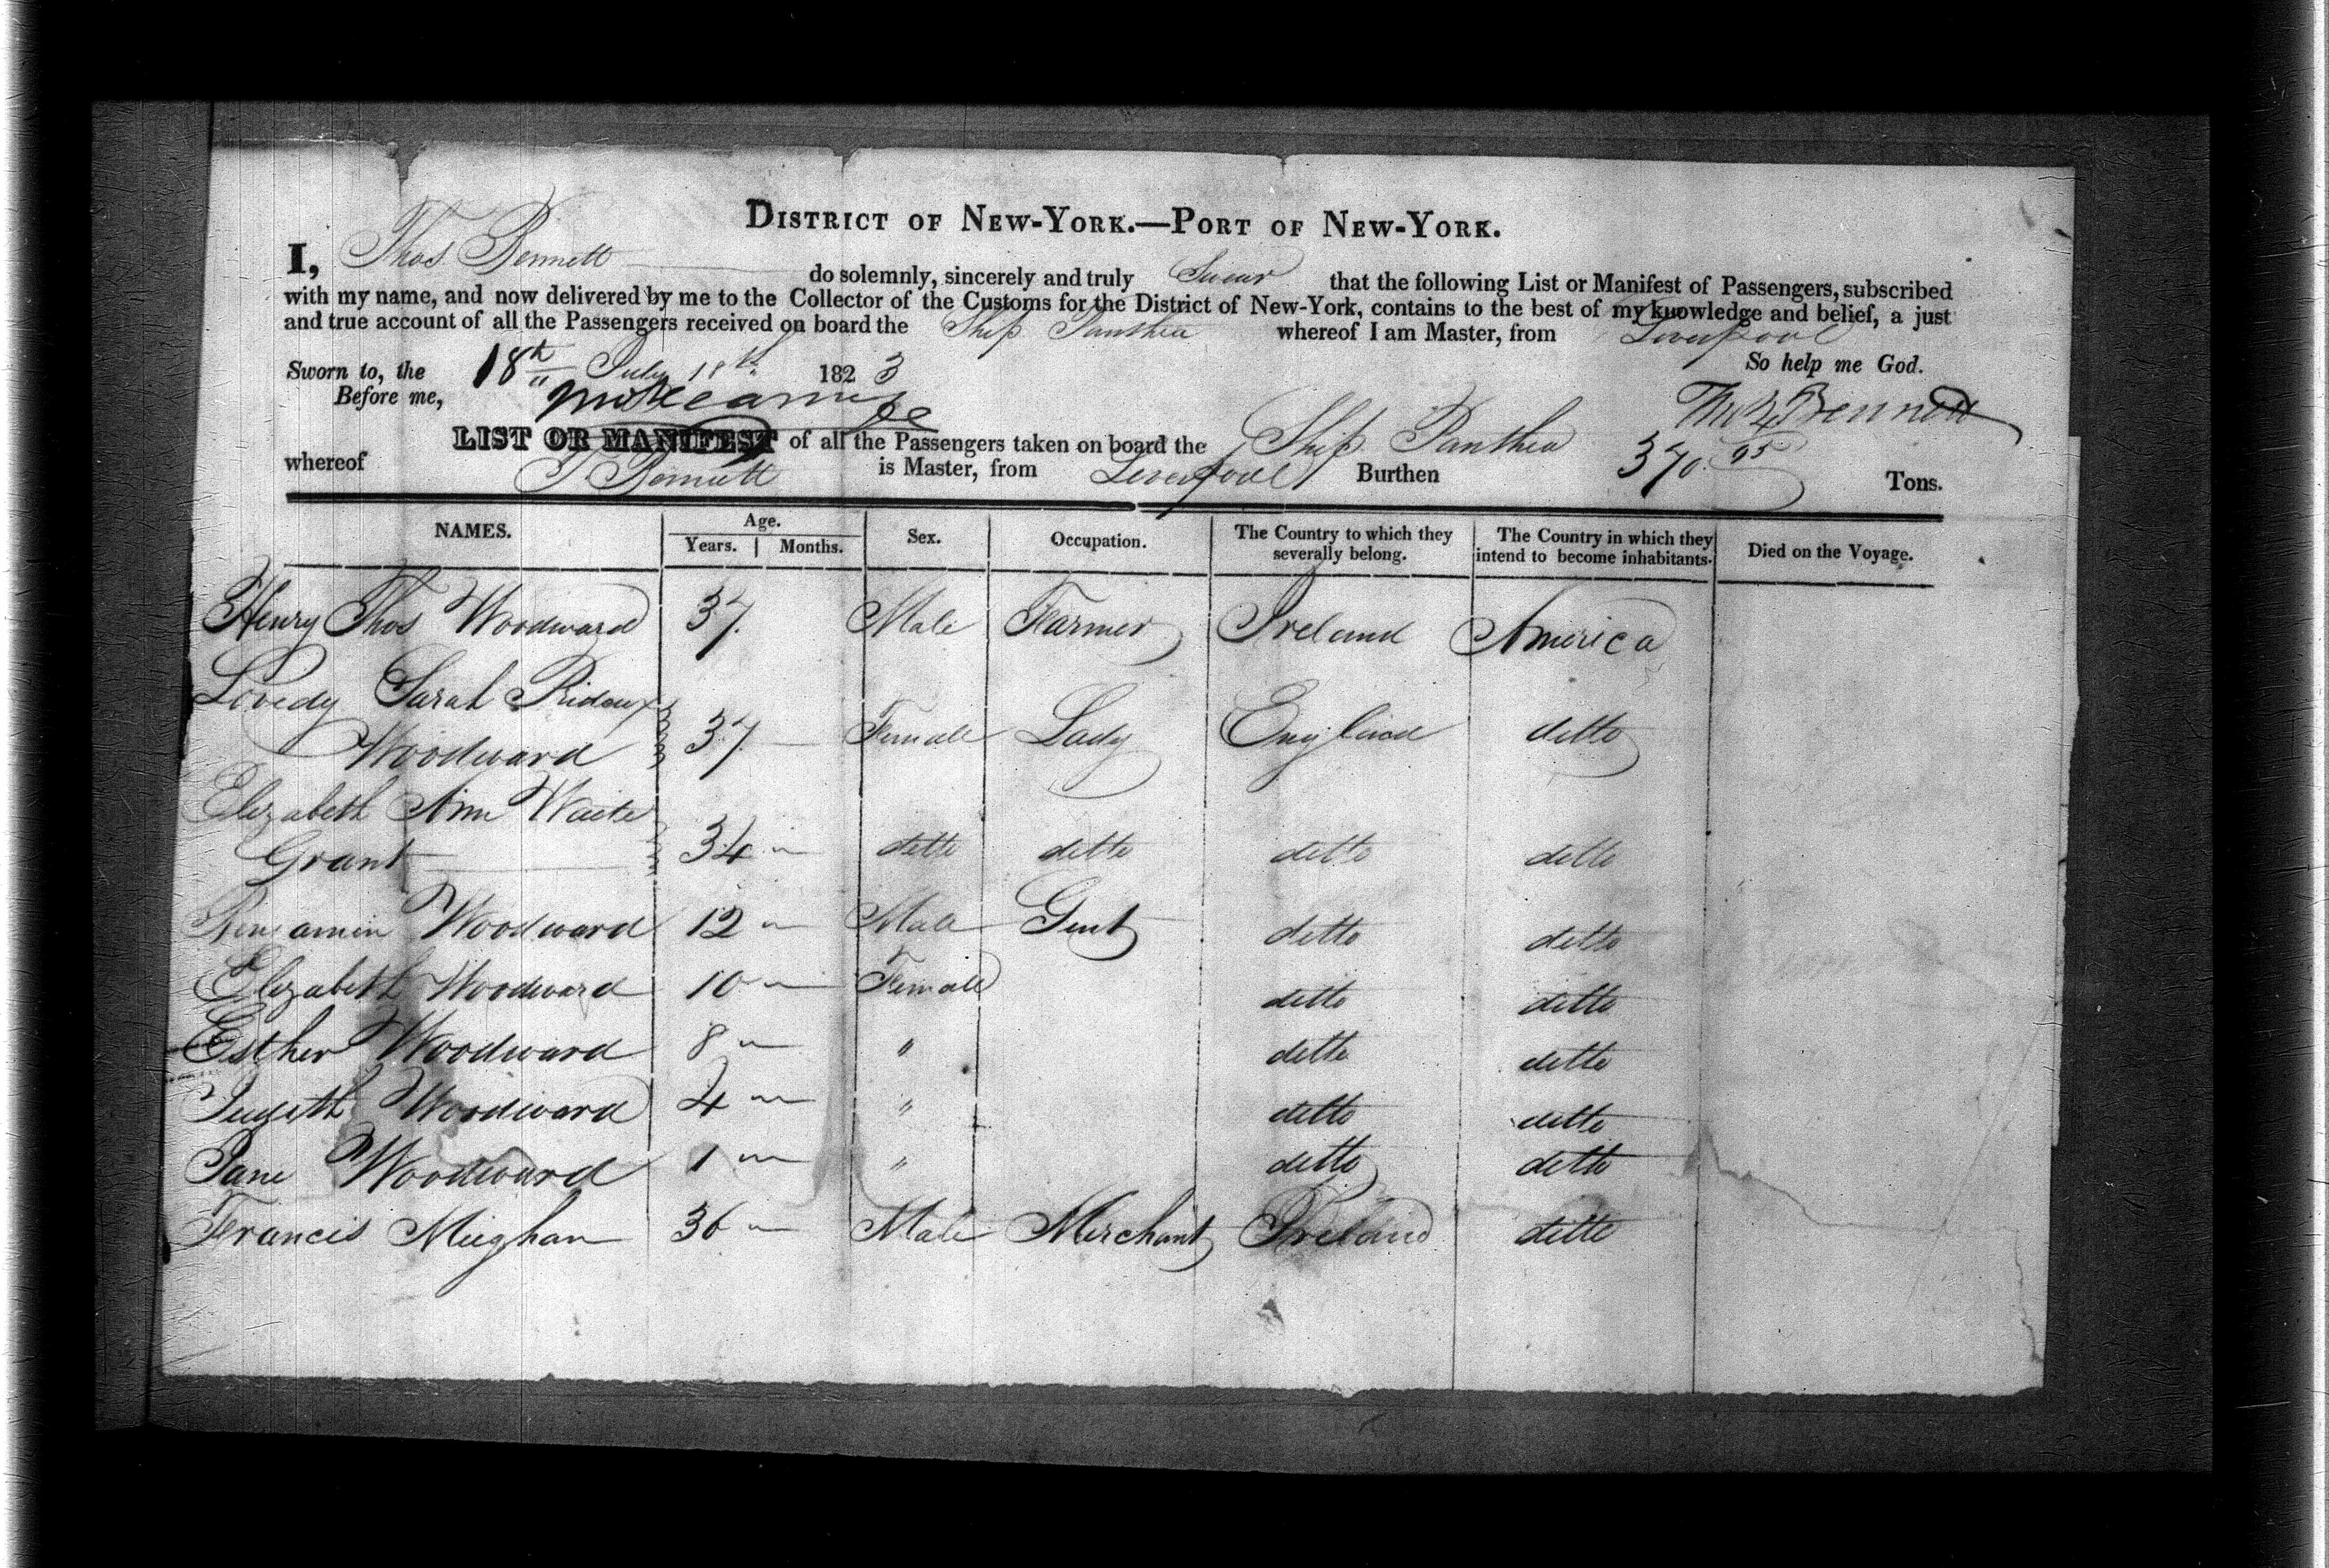 DISTRICT OF NEW-YORK.—PORT OF NEW-YORK.
I, Thos Bennett do solemnly, sincerely and truly Swear that the following List or Manifest of Passengers, subscribed
with my name, and now delivered by me to the Collector of the Customs for the District of New-York, contains to the best of my knowledge and belief, a just
and true account of all the Passengers received on board the Ship Panthea whereof I am Master, from Liverpool
Sworn to, the 18th July 18th 1823 So help me God.
Before me, Thos Bennett
LIST OR MANIFEST of all the Passengers taken on board the Ship Panthea
whereof T Bennett is Master, from Liverpool Burthen 370 95 Tons.
NAMES. Age. Years. Months. Sex. Occupation. The Country to which they severally belong. The Country in which they intend to become inhabitants. Died on the Voyage.
Henry Thos Woodward 37. Male Farmer Ireland America
Lovedy Sarah Prideux
Woodward 37 Female Lady England ditto
Elizabeth Ann Waite
Grant 34 " ditto ditto ditto ditto
Benjamin Woodward 12 " Male Gent ditto ditto
Elizabeth Woodward 10 " Female ditto ditto
Esther Woodward 8 " " ditto ditto
Judith Woodward 4 " " ditto ditto
Jane Woodward 1 " " ditto ditto
Francis Mieghan 36 " Male Merchant Ireland ditto